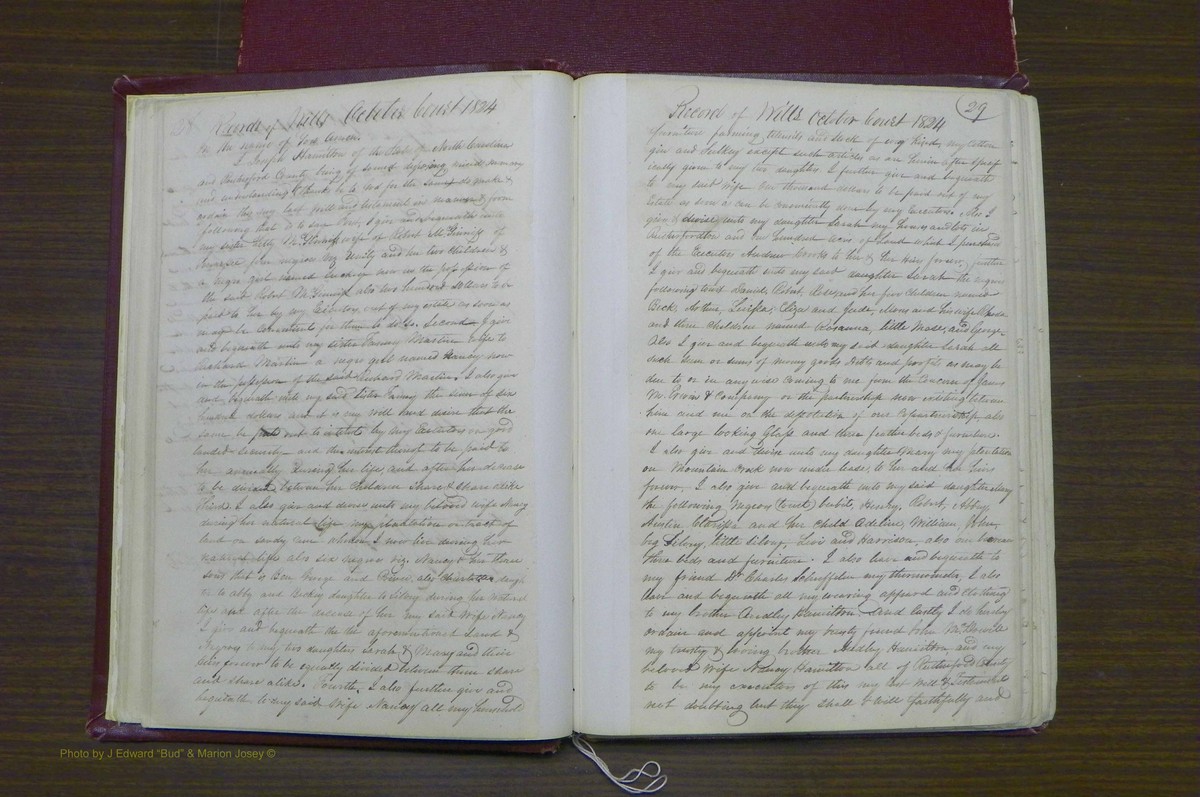 Record of Wills October Court 1824
In the name of God Amen.
I Joseph Hamilton of the State of North Carolina
and Rutherford County being of sound mind memory
and understanding thanks be to God for the same do make &
ordain this my last Will and testament in manner & form
following that is to say First, I give and bequeath unto
my sister wife of Robert McGinnis
negroes Viz Unity and her two children &
a negro girl named now in the possession of
the said Robert McGinnis also two hundred dollars to be
paid to her by my Executors out of my estate as soon as
may be convenient for them to do so. Second I give
and bequeath unto my sister Nancy Martin wife to
Richard Martin a negro girl named Nancy now
in the possession of the said Richard Martin. I also give
and bequeath unto my said sister Nancy the sum of
hundred dollars and it is my will and desire that the
same be put out to interest by my Executors on good
landed security and the interest thereof to be paid to
her annually during her life and after her decease
to be divided between her children share & share alike
Third. I also give and devise unto my beloved wife Nancy
during her natural life my plantation or tract of
land on Sandy run whereon I now live during her
natural life also six negroes viz. Nancy & her three
sons that is Ben, George and also Charlotte daugh
ter to Abby and daughter to during her natural
life and after the decease of her my said wife Nancy
I give and bequeath the aforementioned Land &
Negroes to my two daughters Sarah & Mary and their
heirs forever to be equally divided between them share
and share alike. Fourth, I also further give and
bequeath to my said Wife Nancy all my household
29
Record of Wills October Court 1824
furniture farming utensils and stock of every kind, my cotton
gin and Sulkey except such articles as are herein after specif
ically given to my two daughters. I further give and bequeath
to my said wife One thousand dollars to be paid out of my
Estate as soon as can be conveniently done by my Executors. Also I
give & devise unto my daughter Sarah my house and lots in
Rutherfordton and one hundred acres of land which I purchased
of the Executors Andrew to her & her heirs forever, further
I give and bequeath unto my said daughter Sarah the negroes
following to wit Daniel, Robert, and her five children named
Beck, Arthur, Eliza and Jude, Mons and his wife Rhoda
and three children named Rosanna, little Mose, and George.
Also I give and bequeath unto my said daughter Sarah all
such sum or sums of money goods debts and profits as may be
due to or in any wise coming to me from the concern of James
& Company or the partnership now existing between
him and me or the of our Copartnership, also
one large looking Glass and three feather beds & furniture.
I also give and devise unto my daughter Mary my plantation
on Mountain Creek now under lease, to her and her heirs
forever. I also give and bequeath unto my said daughter Mary
the following Negroes (towit) Henry, Robert, Abby,
Austin, Clarissa and her child Adeline, William, John,
big little Levi and Harrison, also one bureau
three beds and furniture. I also leave and bequeath to
my friend Dr. Charles Schieffelin my thermometer, I also
leave and bequeath all my wearing apparel and clothing
to my brother Audley Hamilton. And lastly I do hereby
ordain and appoint my trusty friend John
my trusty & loving brother Audley Hamilton and my
beloved Wife Nancy Hamilton all of Rutherford County
to be my executors of this my last will & Testament
not doubting but they shall & will faithfully and
Photo by J Edward "Bud" & Marion Josey ©